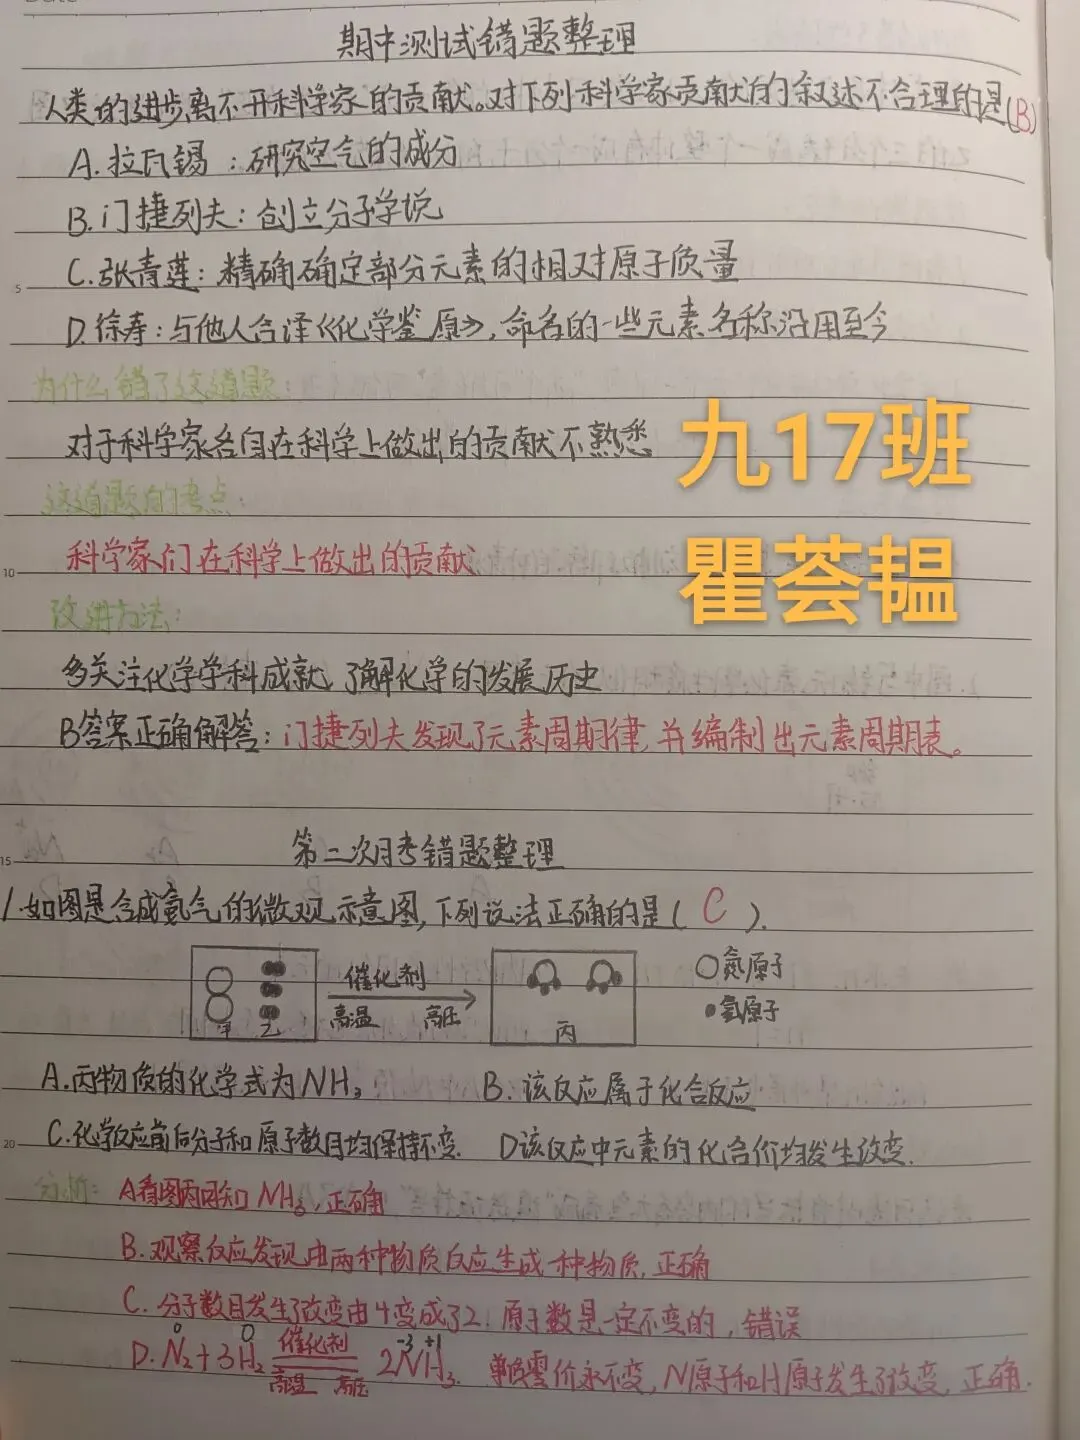 期中测试错题整理
人类的进步离不开科学家的贡献。对下列科学家贡献的叙述不合理的是(B)
A.拉瓦锡：研究空气的成分
B.门捷列夫：创立分子学说
C.张青莲：精确确定部分元素的相对原子质量
D.徐寿：与他人合译《化学鉴原》，命名的一些元素名称沿用至今
为什么错了这道题：
对于科学家各自在科学上做出的贡献不熟悉
九17班
这道题的考点：
瞿荟韫
科学家们在科学上做出的贡献
改进方法：
多关注化学学科成就，了解化学的发展历史
B答案正确解答：门捷列夫发现了元素周期律，并编制出元素周期表。
第二次月考错题整理
1.如图是合成氨气的微观示意图，下列说法正确的是(C).
催化剂
高温 高压
甲 乙
丙
○氮原子
●氢原子
A.丙物质的化学式为NH₃ B.该反应属于化合反应
C.化学反应前后分子和原子数目均保持不变. D该反应中元素的化合价均发生改变.
分析：A看图丙可知NH₃，正确
B.观察反应发现由两种物质反应生成一种物质，正确
C.分子数目发生了改变由4变成了2，原子数是一定不变的，错误
0 0 催化剂 -3 +1
D.N₂+3H₂ 高温 高压 2NH₃. 单质零价永不变，N原子和H原子发生了改变，正确.